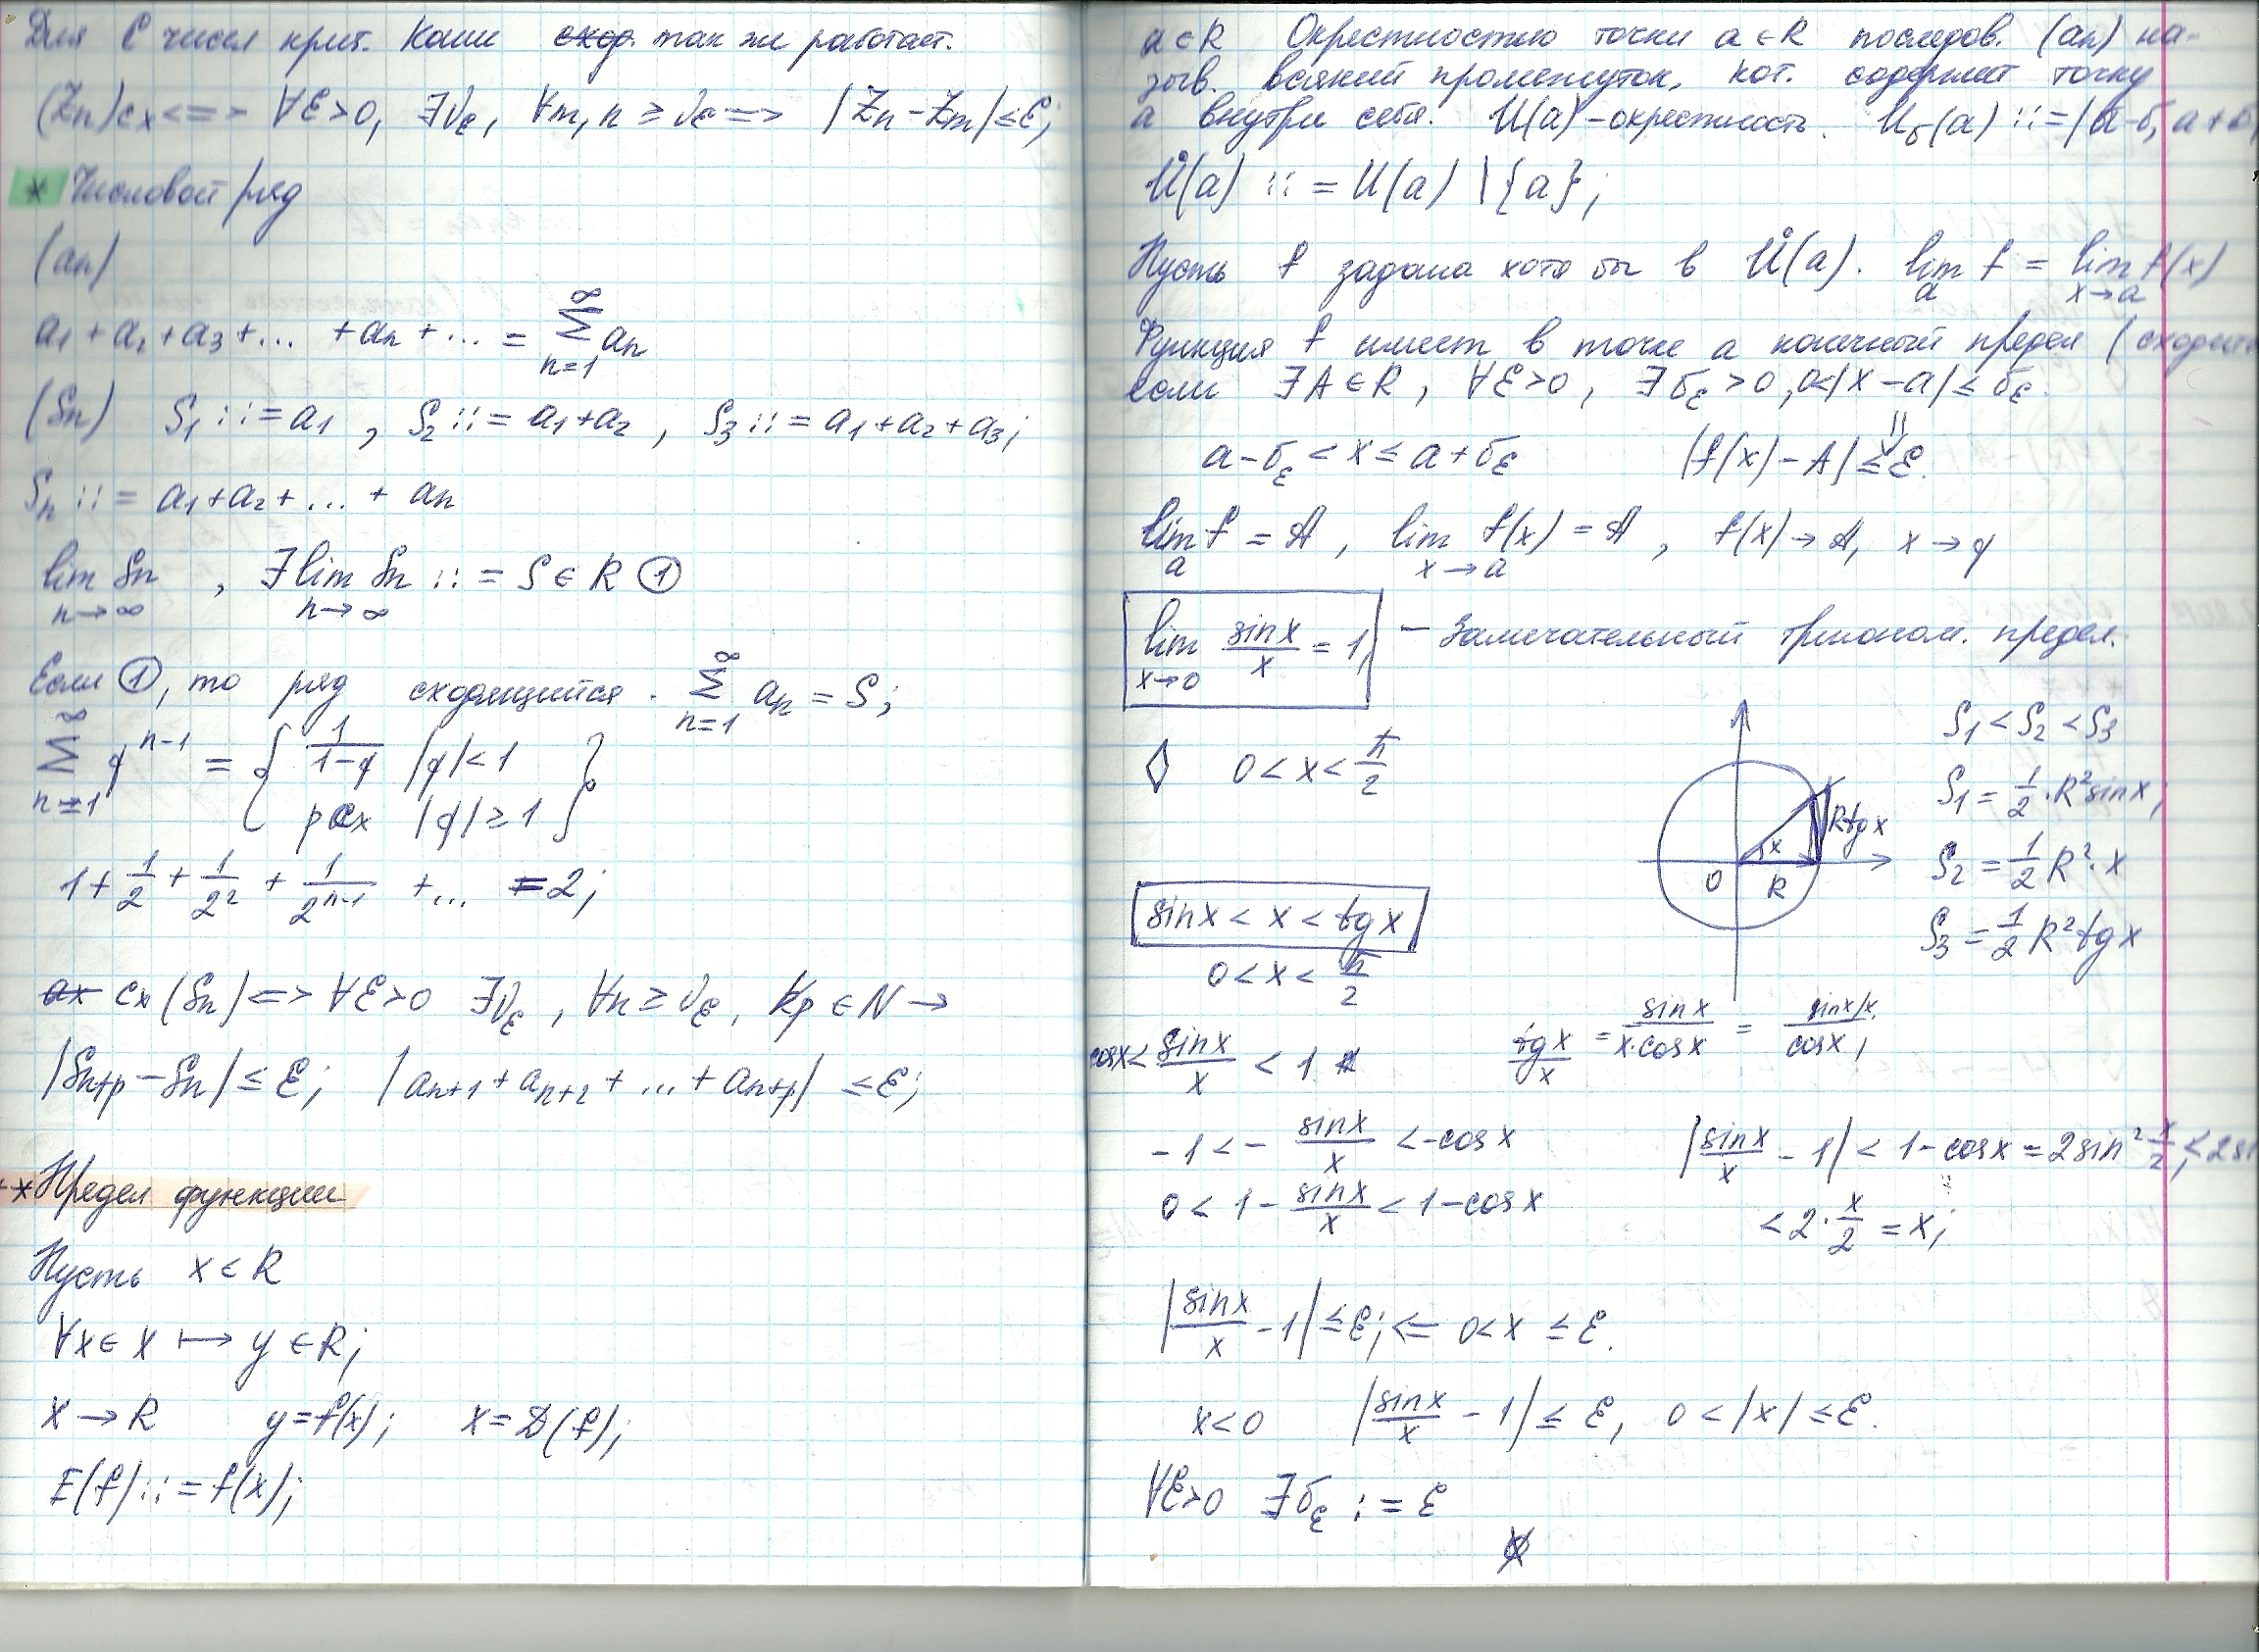 Для C чисел крит. Коши сход. так же работает.
(Zn) сх <=> ∀ε>0, ∃νε, ∀m, n ≥ νε => |Zn - Zm| ≤ ε;
* Числовой ряд
(an)
a1 + a2 + a3 + ... + an + ... = ∑ an
n=1 ∞
(Sn) S1 ::= a1 , S2 ::= a1+a2 , S3 ::= a1+a2+a3;
Sn ::= a1+a2+ ... + an
lim Sn , ∃ lim Sn ::= S ∈ R ①
n→∞ n→∞
Если ①, то ряд сходящийся. ∑ an = S;
n=1 ∞
∑ q^(n-1) = { 1/(1-q) |q|<1
n=1 ∞ расх |q| ≥ 1 }
1 + 1/2 + 1/2² + 1/2^(n-1) + ... = 2;
сх (Sn) <=> ∀ε>0 ∃νε , ∀n ≥ νε, ∀p ∈ N →
|Sn+p - Sn| ≤ ε; |an+1 + an+2 + ... + an+p| ≤ ε;
* Предел функции
Пусть x ⊂ R
∀x ∈ X ↦ y ∈ R;
X → R y=f(x); X = D(f);
E(f) ::= f(x);
a ∈ R Окрестностью точки a ∈ R последов. (an) на-
зыв. всякий промежуток, кот. содержит точку
a внутри себя. U(a) - окрестность. Uδ(a) ::= (a-δ, a+δ
Ů(a) ::= U(a) \ {a};
Пусть f задана хотя бы в Ů(a). lim f = lim f(x)
a x→a
Функция f имеет в точке a конечный предел (сходит
если ∃A ∈ R , ∀ε>0 , ∃δε > 0 , 0<|x - a| ≤ δε.
⇓
a-δε < x ≤ a+δε |f(x) - A| ≤ ε.
lim f = A , lim f(x) = A , f(x) → A, x → a
a x→a
lim sinx/x = 1, – Замечательный тригоном. предел.
x→0
S1 < S2 < S3
◊ 0 < x < π/2
S1 = 1/2 · R² sinx,
R tg x
x
S2 = 1/2 R² · x
0 R
sinx < x < tg x
S3 = 1/2 R² tg x
0 < x < π/2
cosx < sinx/x < 1 tg x/x = sinx/(x·cosx) = (sinx/x)/cosx ,
-1 < - sinx/x < -cosx |sinx/x - 1| < 1 - cosx = 2sin² x/2 ≤ 2si
0 < 1 - sinx/x < 1 - cosx < 2 · x/2 = x;
|sinx/x - 1| ≤ ε; <= 0 < x ≤ ε.
x<0 |sinx/x - 1| ≤ ε, 0 < |x| ≤ ε.
∀ε>0 ∃δε := ε